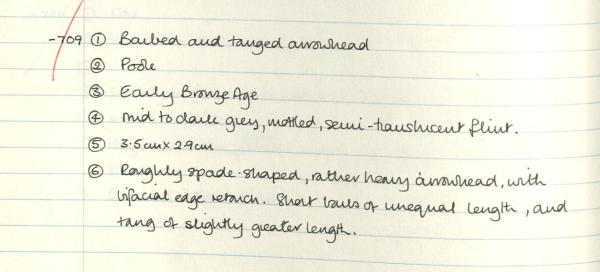 -709 ① Barbed and tanged arrowhead
② Poole
③ Early Bronze Age
④ Mid to dark grey, mottled, semi-translucent flint.
⑤ 3.5cm x 2.9cm
⑥ Roughly spade-shaped, rather heavy arrowhead, with
bifacial edge retouch. Short barbs of unequal length, and
tang of slightly greater length.